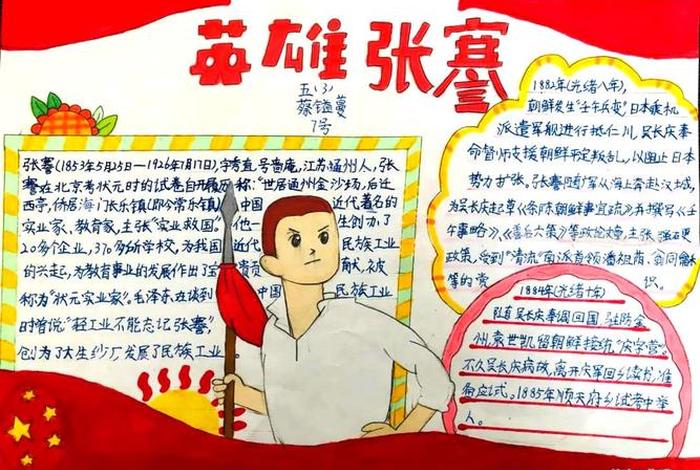 英雄张謇
五(3)
蔡镒蔓
7号
张謇(1853年5月25日—1926年7月17日),字季直,号啬庵,江苏通州人,张
謇在北京考状元时的试卷自开履历称:"世居通州金沙场,后迁
西亭,侨居海门长乐镇(即今常乐镇)中国近代著名的
实业家、教育家,主张"实业救国"。他一生创办了
20多个企业,370多所学校,为我国近代民族工业
的兴起,为教育事业的发展作出了宝贵贡献,被
称为"状元实业家"。毛泽东在谈到中国民族工业
时曾说:"轻工业不能忘记张謇"
创办了大生纱厂发展了民族工业
1882年(光绪八年),
朝鲜发生"壬午兵变",日本乘机
派遣军舰进行抵仁川,吴长庆奉
命督师支援朝鲜平定叛乱,以阻止日本
势力扩张。张謇随庆军从海上奔赴汉城,
为吴长庆起草《条陈朝鲜事宜疏》并撰写《壬
午事略》、《善后六策》等政论文章,主张强硬
政策,受到"清流"南派首领潘祖荫、翁同龢
等的赏识。
1884年(光绪十年)
随吴长庆奉调回国,驻防金
州,袁世凯留朝鲜接统"庆字营"。
不久吴长庆病故,离开庆军回乡读书,准
备应试。1885年顺天府乡试考中举
人。